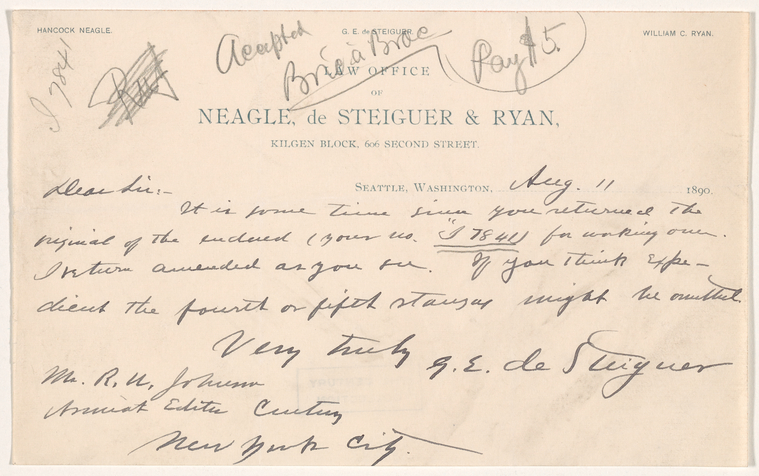 HANCOCK NEAGLE.
G. E. de STEIGUER.
WILLIAM C. RYAN.
I 7841
Accepted
Bric à Brac
Pay $15.
LAW OFFICE
OF
NEAGLE, de STEIGUER & RYAN,
KILGEN BLOCK, 606 SECOND STREET.
SEATTLE, WASHINGTON, Aug. 11 1890.
Dear Sir:-
It is some time since you returned the
original of the enclosed (your no. "I 7841) for working over.
I return amended as you see. If you think expe-
dient the fourth or fifth stanzas might be omitted.
Very truly G. E. de Steiguer
Mr. R. U. Johnson
Associat Editor Century
New York City.